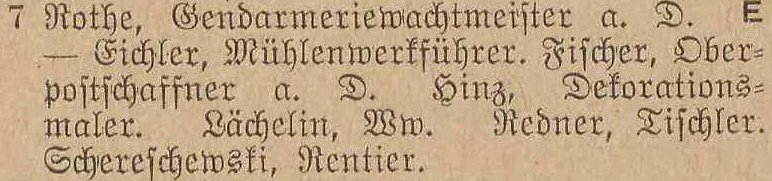 7 Rothe, Gendarmeriewachtmeister a. D. E
— Eichler, Mühlenwerkführer. Fischer, Ober-
postschaffner a. D. Hinz, Dekorations-
maler. Lächelin, Ww. Redner, Tischler.
Schereschewski, Rentier.